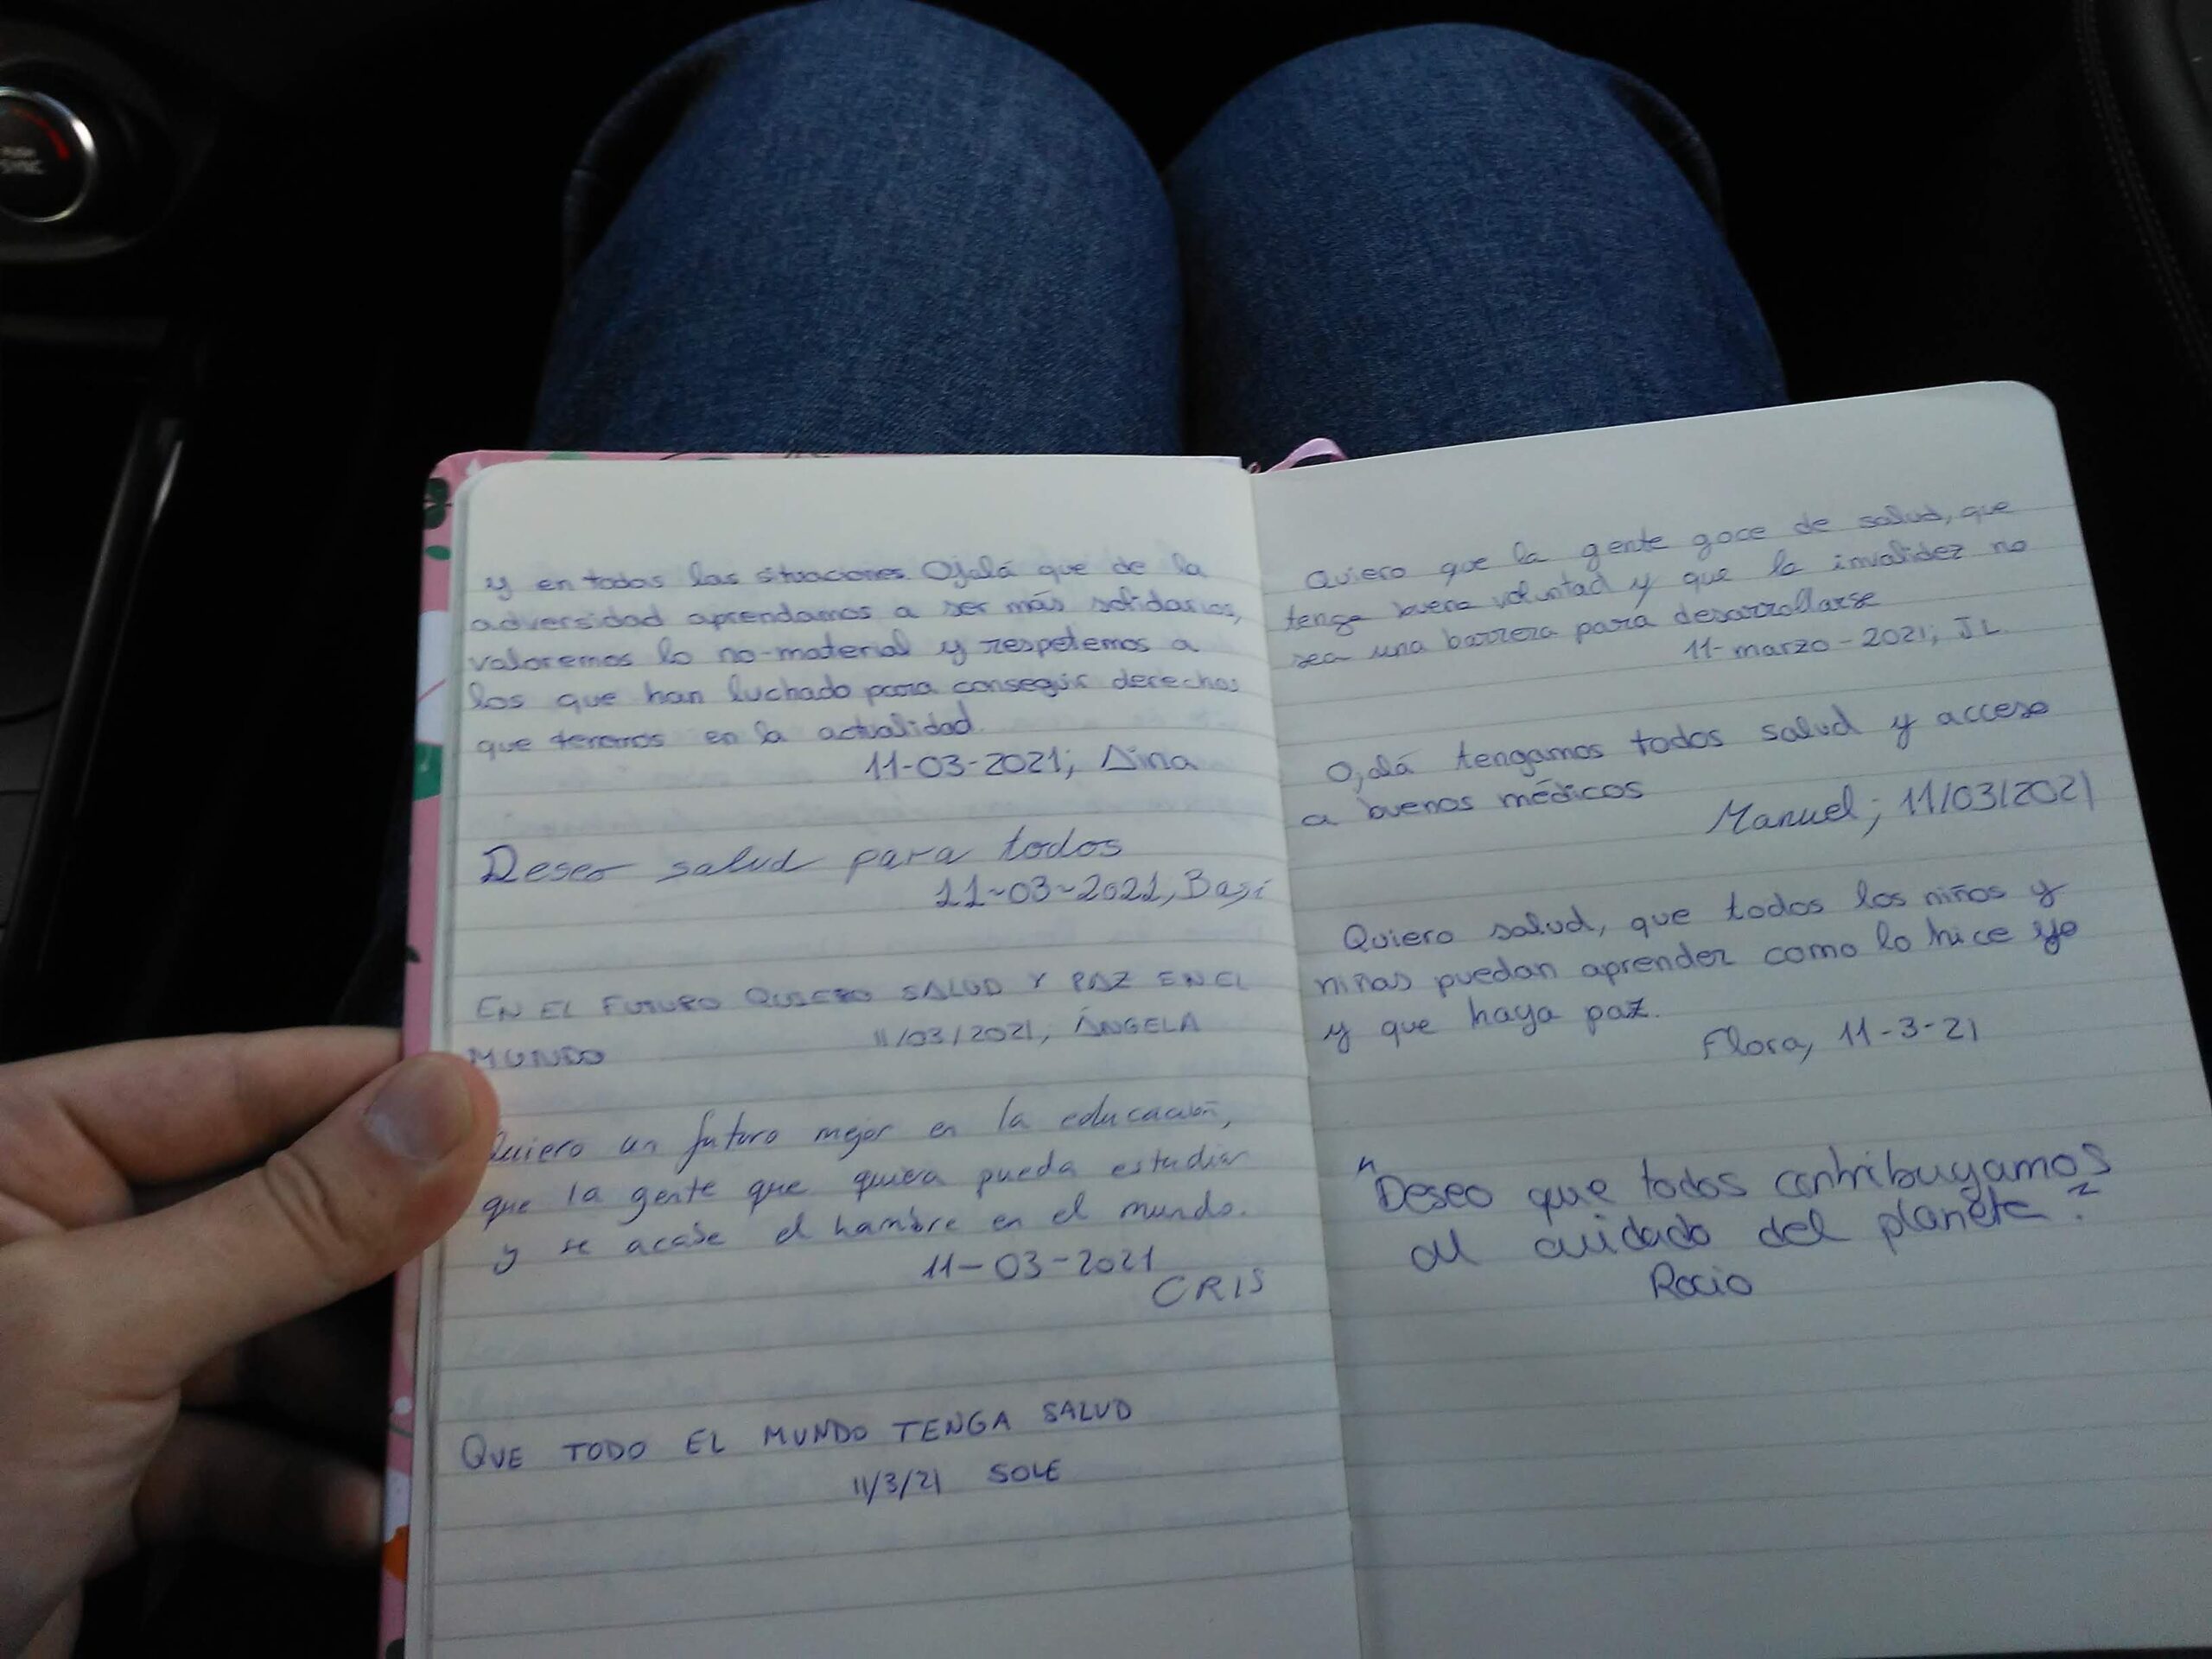 PUSH
SYNC
y en todas las situaciones. Ojalá que de la
adversidad aprendamos a ser más solidarios,
valoremos lo no-material y respetemos a
los que han luchado para conseguir derechos
que tenemos en la actualidad.
11-03-2021; Dina
Deseo salud para todos
11-03-2021, Basi
EN EL FUTURO QUIERO SALUD Y PAZ EN EL
MUNDO
11/03/2021, ÁNGELA
Quiero un futuro mejor en la educación,
que la gente que quiera pueda estudiar
y se acabe el hambre en el mundo.
11-03-2021
CRIS
QUE TODO EL MUNDO TENGA SALUD
11/3/21 SOLE
Quiero que la gente goce de salud, que
tenga buena voluntad y que la invalidez no
sea una barrera para desarrollarse
11-marzo-2021; JL
Ojalá tengamos todos salud y acceso
a buenos médicos
Manuel; 11/03/2021
Quiero salud, que todos los niños y
niñas puedan aprender como lo hice yo
y que haya paz.
Flora, 11-3-21
"Deseo que todos contribuyamos
al cuidado del planeta".
Rocio